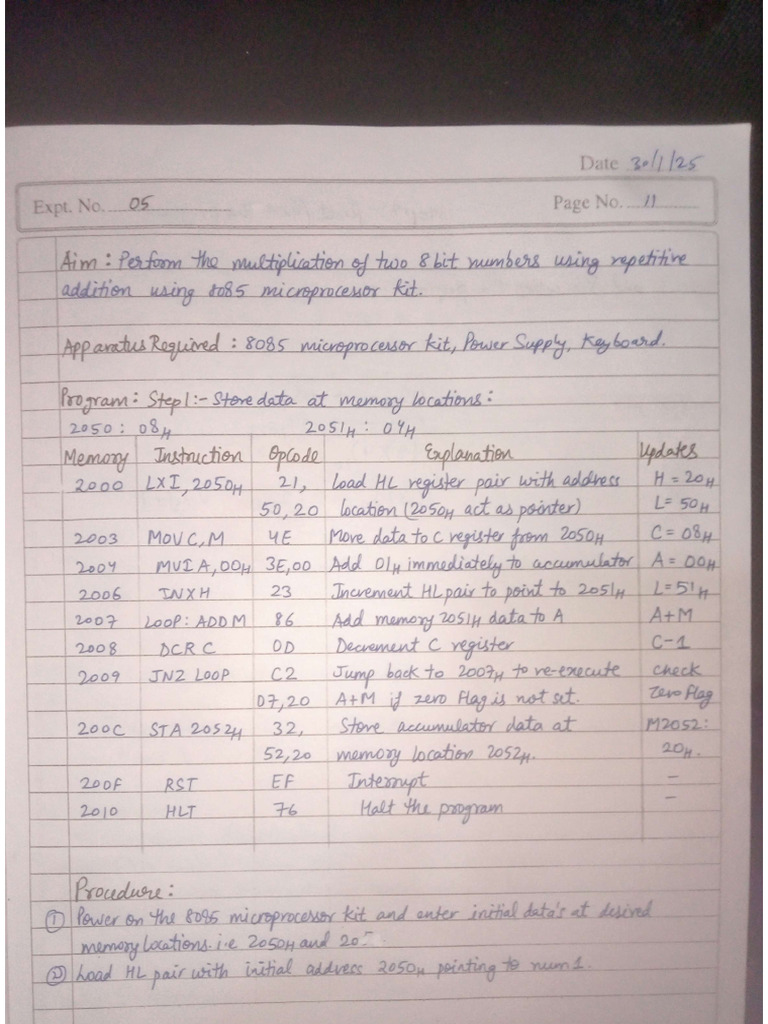 Date 30/1/25
Expt. No. 05 Page No. 11
Aim : Perform the multiplication of two 8 bit numbers using repetitive
addition using 8085 microprocessor kit.
Apparatus Required : 8085 microprocessor kit, Power Supply, Keyboard.
Program : Step 1 :- Store data at memory locations :
2050 : 08H 2051H : 04H
Memory Instruction Opcode Explanation Updates
2000 LXI, 2050H 21, Load HL register pair with address H = 20H
50, 20 location (2050H act as pointer) L = 50H
2003 MOV C, M 4E Move data to C register from 2050H C = 08H
2004 MVI A, 00H 3E, 00 Add 01H immediately to accumulator A = 00H
2006 INX H 23 Increment HL pair to point to 2051H L = 51H
2007 LOOP : ADD M 86 Add memory 2051H data to A A+M
2008 DCR C 0D Decrement C register C-1
2009 JNZ LOOP C2 Jump back to 2007H to re-execute check
07, 20 A+M if zero flag is not set. zero flag
200C STA 2052H 32, Store accumulator data at M2052 :
52, 20 memory location 2052H. 20H.
200F RST EF Interrupt -
2010 HLT 76 Halt the program -
Procedure :
① Power on the 8085 microprocessor kit and enter initial data's at desired
memory locations. i.e 2050H and
② Load HL pair with initial address 2050H pointing to num 1.